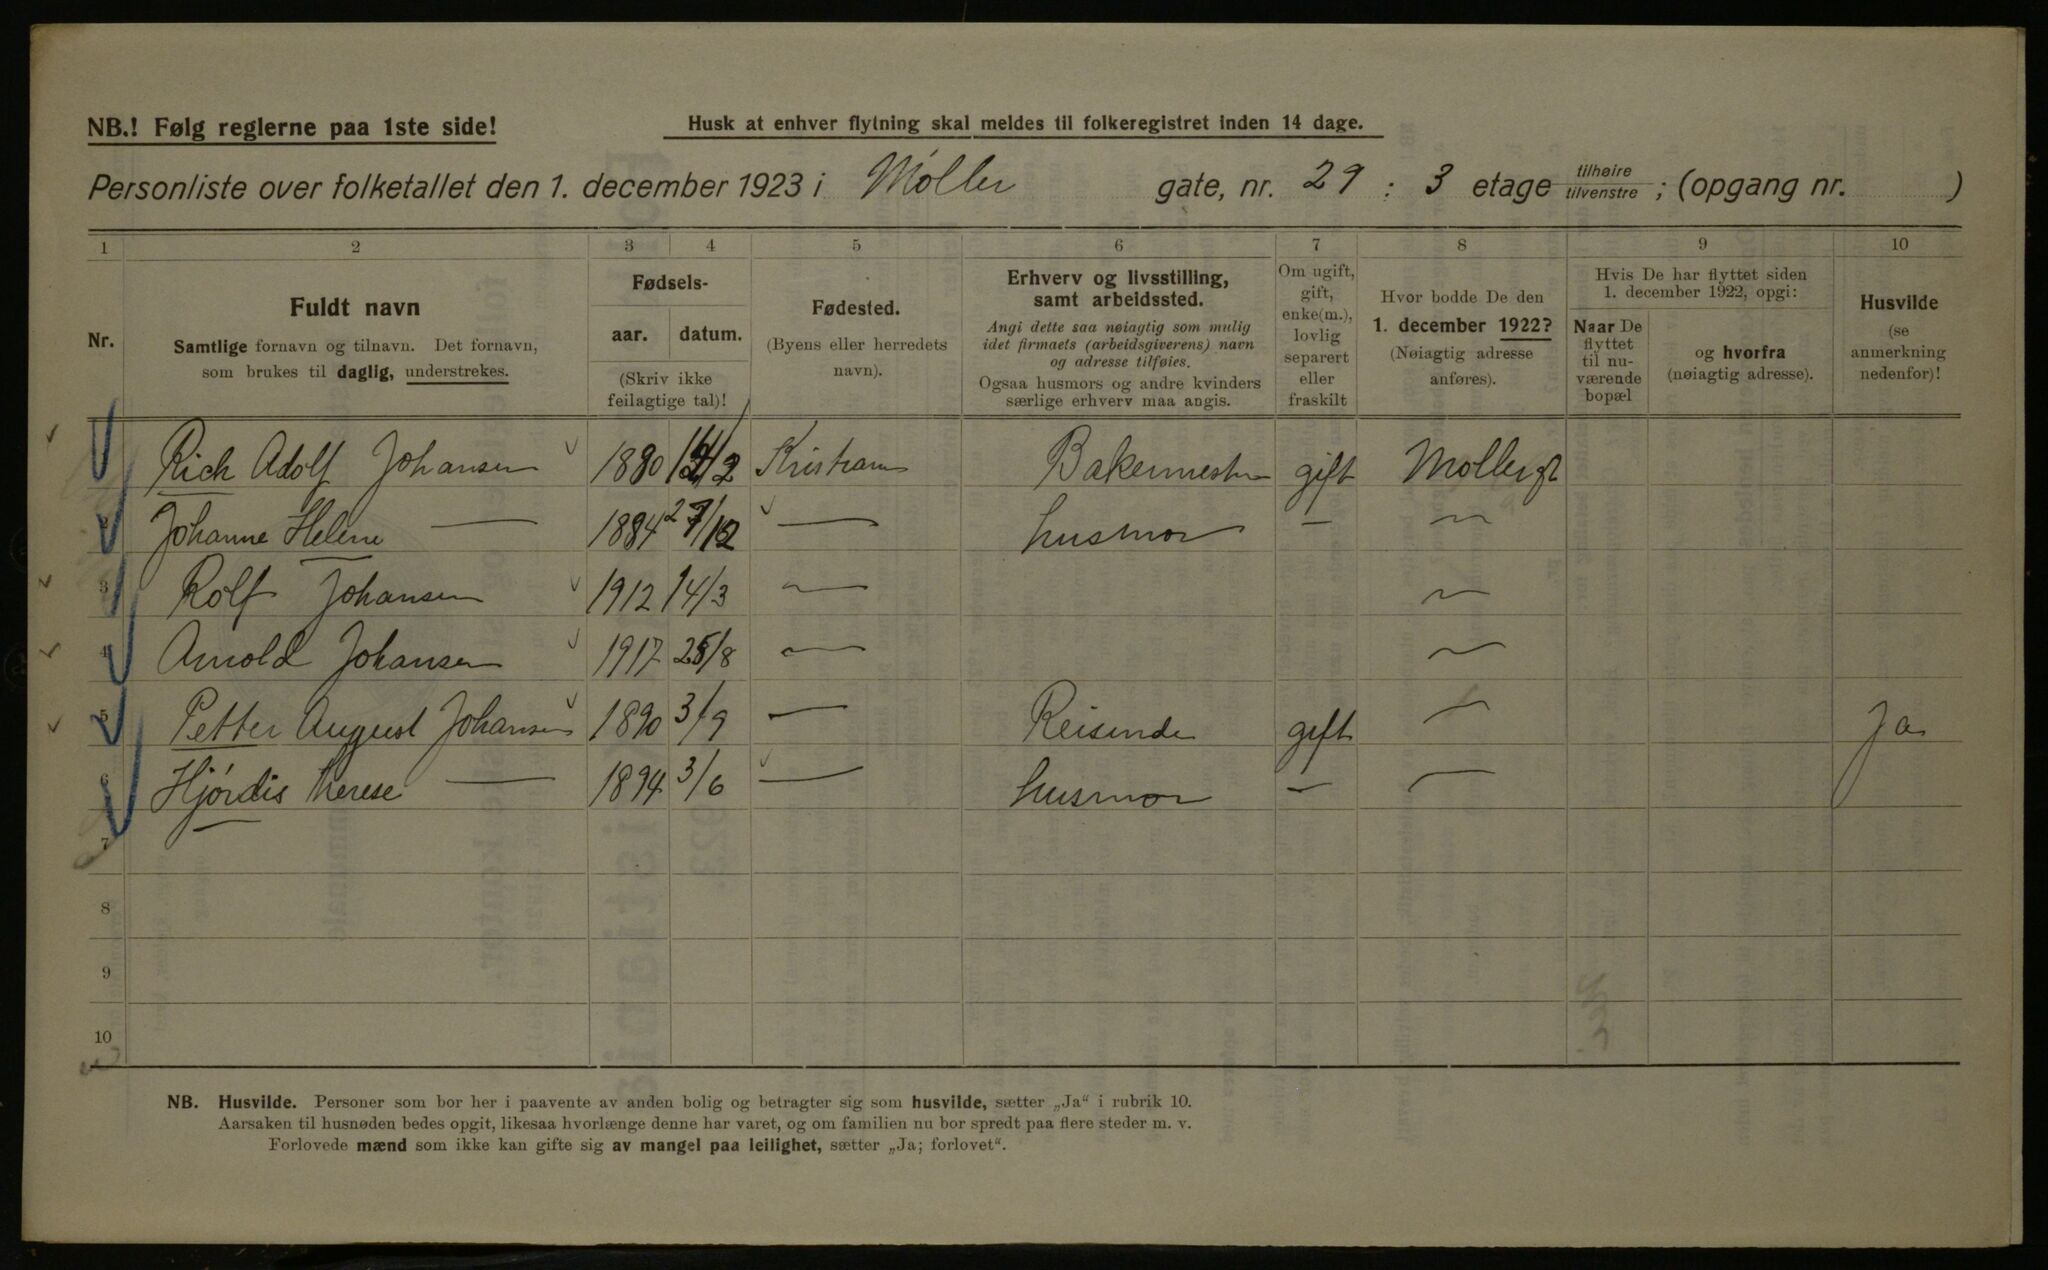 NB.! Følg reglerne paa 1ste side!
Husk at enhver flytning skal meldes til folkeregistret inden 14 dage.
Personliste over folketallet den 1. december 1923 i Møller gate, nr. 29 : 3 etage tilhøire/tilvenstre ; (opgang nr. )
1 2 3 4 5 6 7 8 9 10
Nr.
Fuldt navn
Samtlige fornavn og tilnavn. Det fornavn,
som brukes til daglig, understrekes.
Fødsels-
aar. datum.
(Skriv ikke
feilagtige tal)!
Fødested.
(Byens eller herredets
navn).
Erhverv og livsstilling,
samt arbeidssted.
Angi dette saa nøiagtig som mulig
idet firmaets (arbeidsgiverens) navn
og adresse tilføies.
Ogsaa husmors og andre kvinders
særlige erhverv maa angis.
Om ugift,
gift,
enke(m.),
lovlig
separert
eller
fraskilt
Hvor bodde De den
1. december 1922?
(Nøiagtig adresse
anføres).
Hvis De har flyttet siden
1. december 1922, opgi:
Naar De
flyttet
til nu-
værende
bopæl
og hvorfra
(nøiagtig adresse).
Husvilde
(se
anmerkning
nedenfor)!
Rich Adolf Johansen 1880 Kristiania Bakermester gift Møllergt
2 Johanne Helene — 1884 27/12 — husmor — —
3 Rolf Johansen 1912 14/3 — —
4 Arnold Johansen 1917 25/8 — —
5 Petter August Johansen 1890 3/9 — Reisende gift — Ja
6 Hjørdis Therese — 1894 3/6 — husmor — —
7
8
9
10
NB. Husvilde. Personer som bor her i paavente av anden bolig og betragter sig som husvilde, sætter „Ja“ i rubrik 10.
Aarsaken til husnøden bedes opgit, likesaa hvorlænge denne har varet, og om familien nu bor spredt paa flere steder m. v.
Forlovede mænd som ikke kan gifte sig av mangel paa leilighet, sætter „Ja; forlovet“.